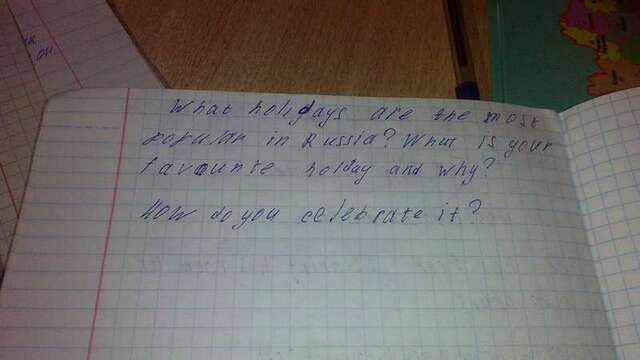 What holidays are the most
popular in Russia? What is your
favounte holday and why?
How do you celebrate it?